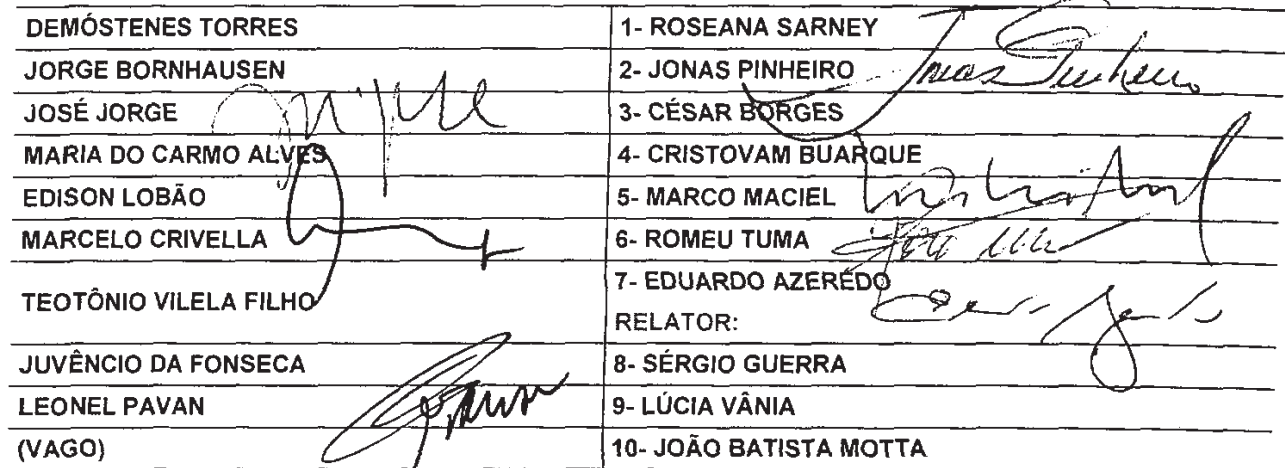 DEMÓSTENES TORRES
1- ROSEANA SARNEY
JORGE BORNHAUSEN
2- JONAS PINHEIRO
Jonas Pinheiro
JOSÉ JORGE
3- CÉSAR BORGES
MARIA DO CARMO ALVES
4- CRISTOVAM BUARQUE
EDISON LOBÃO
5- MARCO MACIEL
MARCELO CRIVELLA
6- ROMEU TUMA
TEOTÔNIO VILELA FILHO
7- EDUARDO AZEREDO
RELATOR:
JUVÊNCIO DA FONSECA
8- SÉRGIO GUERRA
LEONEL PAVAN
9- LÚCIA VÂNIA
(VAGO)
10- JOÃO BATISTA MOTTA